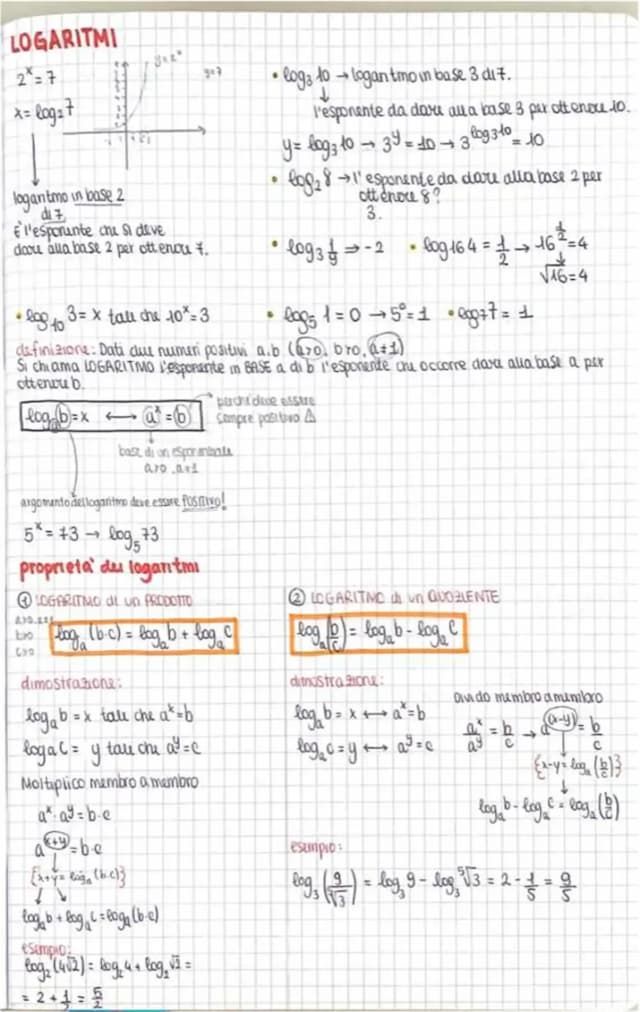 LOGARITMI
2ˣ = 7
y=2ˣ
y=7
x = log₂7
logaritmo in base 2
di 7
È l'esponente che si deve
dare alla base 2 per ottenere 7.
• log₃10 → logaritmo in base 3 di 7.
↓
l'esponente da dare alla base 3 per ottenere 10.
y = log₃10 → 3ʸ = 10 → 3^(log₃10) = 10
• log₂8 → l'esponente da dare alla base 2 per
ottenere 8?
3.
• log₃ 1/9 ⇒ -2 • log16 4 = 1/2 → 16^(1/2) = 4
↓
√16 = 4
• log₁₀ 3 = x tale che 10ˣ = 3 • log₅ 1 = 0 → 5⁰ = 1 • log₇7 = 1
definizione: Dati due numeri positivi a.b (a>0, b>0, a≠1)
Si chiama LOGARITMO l'esponente in BASE a di b l'esponente che occorre dare alla base a per
ottenere b.
logₐ(b) = x ⟷ aˣ = b
perché deve essere
sempre positivo ⚠
base di un esponenziale
a>0, a≠1
argomento del logaritmo deve essere POSITIVO!
5ˣ = 73 → log₅73
proprietà dei logaritmi
① LOGARITMO di un PRODOTTO
b>0
c>0
logₐ(b·c) = logₐb + logₐc
dimostrazione:
logₐb = x tale che aˣ = b
logₐc = y tale che aʸ = c
Moltiplico membro a membro
aˣ · aʸ = b·c
a^(x+y) = b·c
↓
{x+y = logₐ(b·c)}
↓ ↓
logₐb + logₐc = logₐ(b·c)
esempio:
log₂(4√2) = log₂4 + log₂√2 =
= 2 + 1/2 = 5/2
② LOGARITMO di un QUOZIENTE
logₐ(b/c) = logₐb - logₐc
dimostrazione:
logₐb = x ⟷ aˣ = b
logₐc = y ⟷ aʸ = c
divido membro a membro
aˣ/aʸ = b/c → a^(x-y) = b/c
↓
{x-y = logₐ(b/c)}
↓
logₐb - logₐc = logₐ(b/c)
esempio:
log₃(9/⁵√3) = log₃9 - log₃⁵√3 = 2 - 1/5 = 9/5